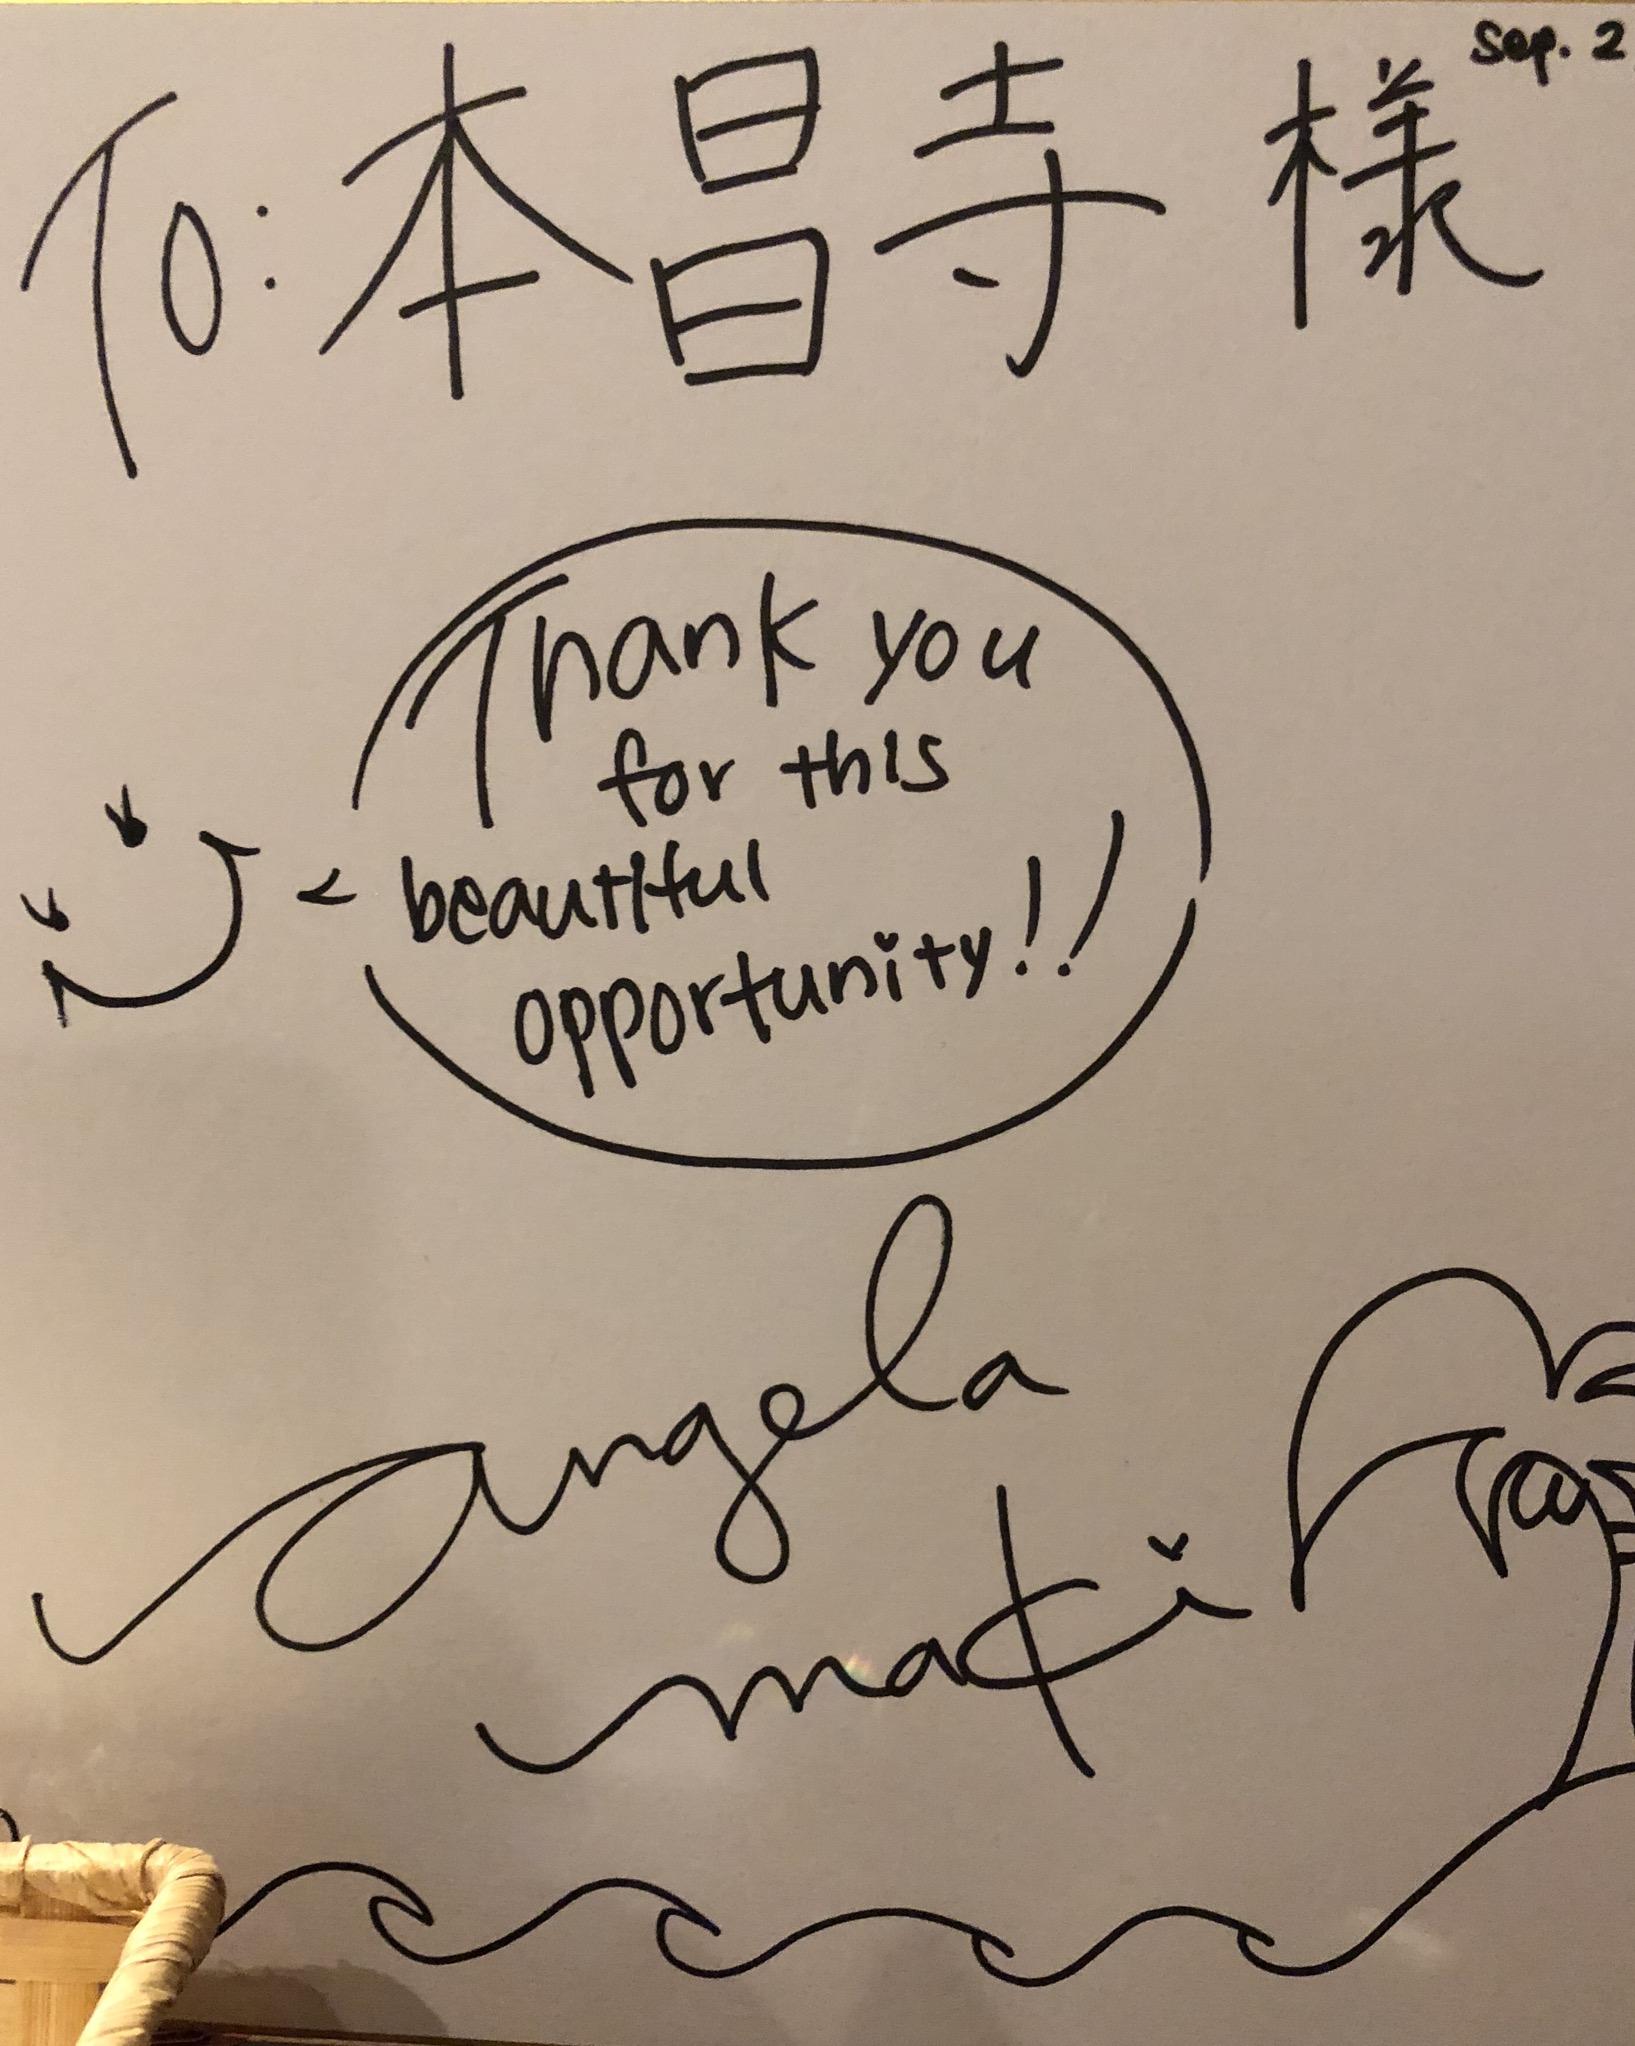 Sep. 2
To: 本昌寺 様
Thank you
for this
beautiful
opportunity!!
angela
maki